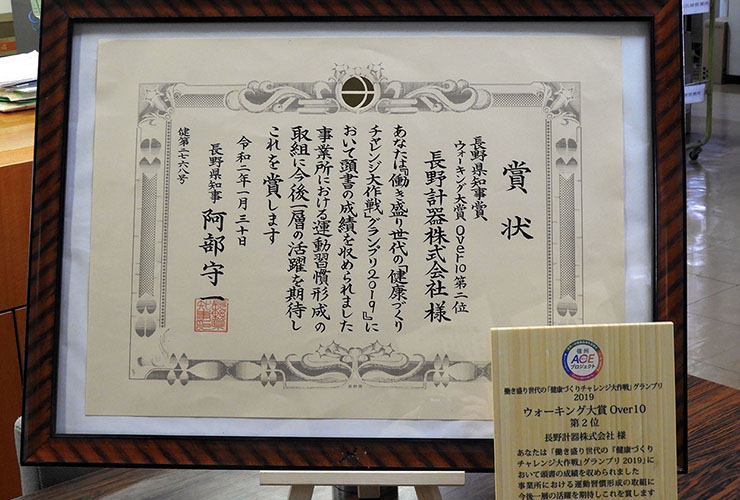 賞状
長野県知事賞
ウォーキング大賞Over10第二位
長野計器株式会社 様
あなたは『働き盛り世代の「健康づくり
チャレンジ大作戦」グランプリ2019』に
おいて頭書の成績を収められました
事業所における運動習慣形成の
取組に今後一層の活躍を期待し
これを賞します
令和二年一月三十日
長野県知事 阿部守一
健第二七六八号
信州
ACE
プロジェクト
働き盛り世代の「健康づくりチャレンジ大作戦」グランプリ
2019
ウォーキング大賞 Over10
第２位
長野計器株式会社 様
あなたは「働き盛り世代の「健康づくり
チャレンジ大作戦」グランプリ 2019」に
おいて頭書の成績を収められました
事業所における運動習慣形成の取組に
今後一層の活躍を期待しこれを賞します